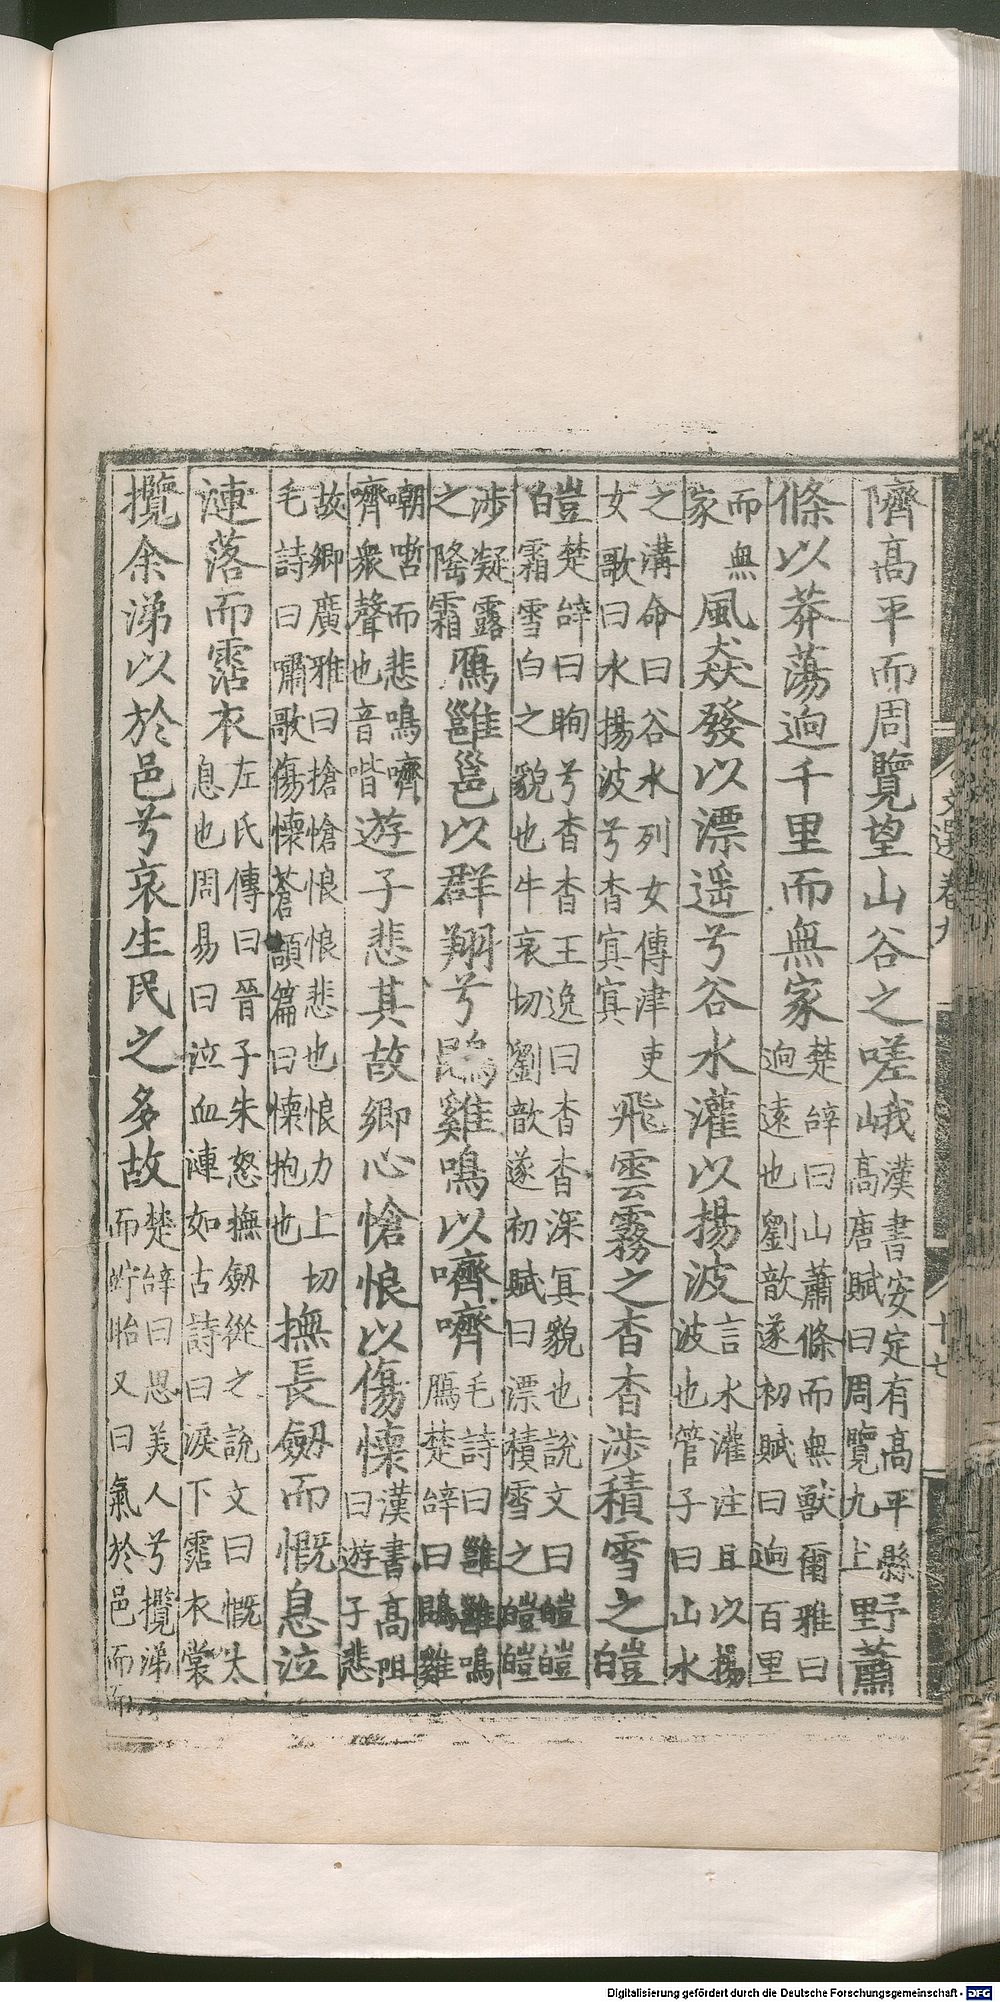 隮高平而周覽望山谷之嗟峨漢書安定有高平縣高唐賦曰周覽九土野蕭
條以莽蕩逈千里而無家楚辭曰山蕭條而無獸爾雅曰逈遠也劉歆遂初賦曰逈百里
而無家風猋發以漂遥兮谷水灌以揚波言水灌注且以揚波也管子曰山水
之溝命曰谷水列女傳津吏女歌曰水揚波兮杳冥冥飛雲霧之杳杳涉積雪之皚
皚楚辭曰眴兮杳杳王逸曰杳杳深冥貌也說文曰皚皚霜雪白之貌也牛哀切劉歆遂初賦曰漂積雪之皚皚
涉凝露之隆霜鴈雝邕以群翔兮鵾雞鳴以嚌嚌毛詩曰雝雝鳴鴈楚辭曰鵾雞
嘲哳而悲鳴嚌嚌衆聲也音喈遊子悲其故鄉心愴悢以傷懷漢書高祖曰遊子悲
故鄉廣雅曰愴愴悢悢悲也悢力上切毛詩曰嘯歌傷懷蒼頡篇曰懷抱也撫長劒而慨息泣
漣落而霑衣左氏傳曰晉子朱怒撫劒從之說文曰慨太息也周易曰泣血漣如古詩曰淚下霑衣裳
攬余涕以於邑兮哀生民之多故楚辭曰思美人兮攬涕而竚眙又曰氣於邑而
文選卷九
十七
Digitalisierung gefördert durch die Deutsche Forschungsgemeinschaft - DFG